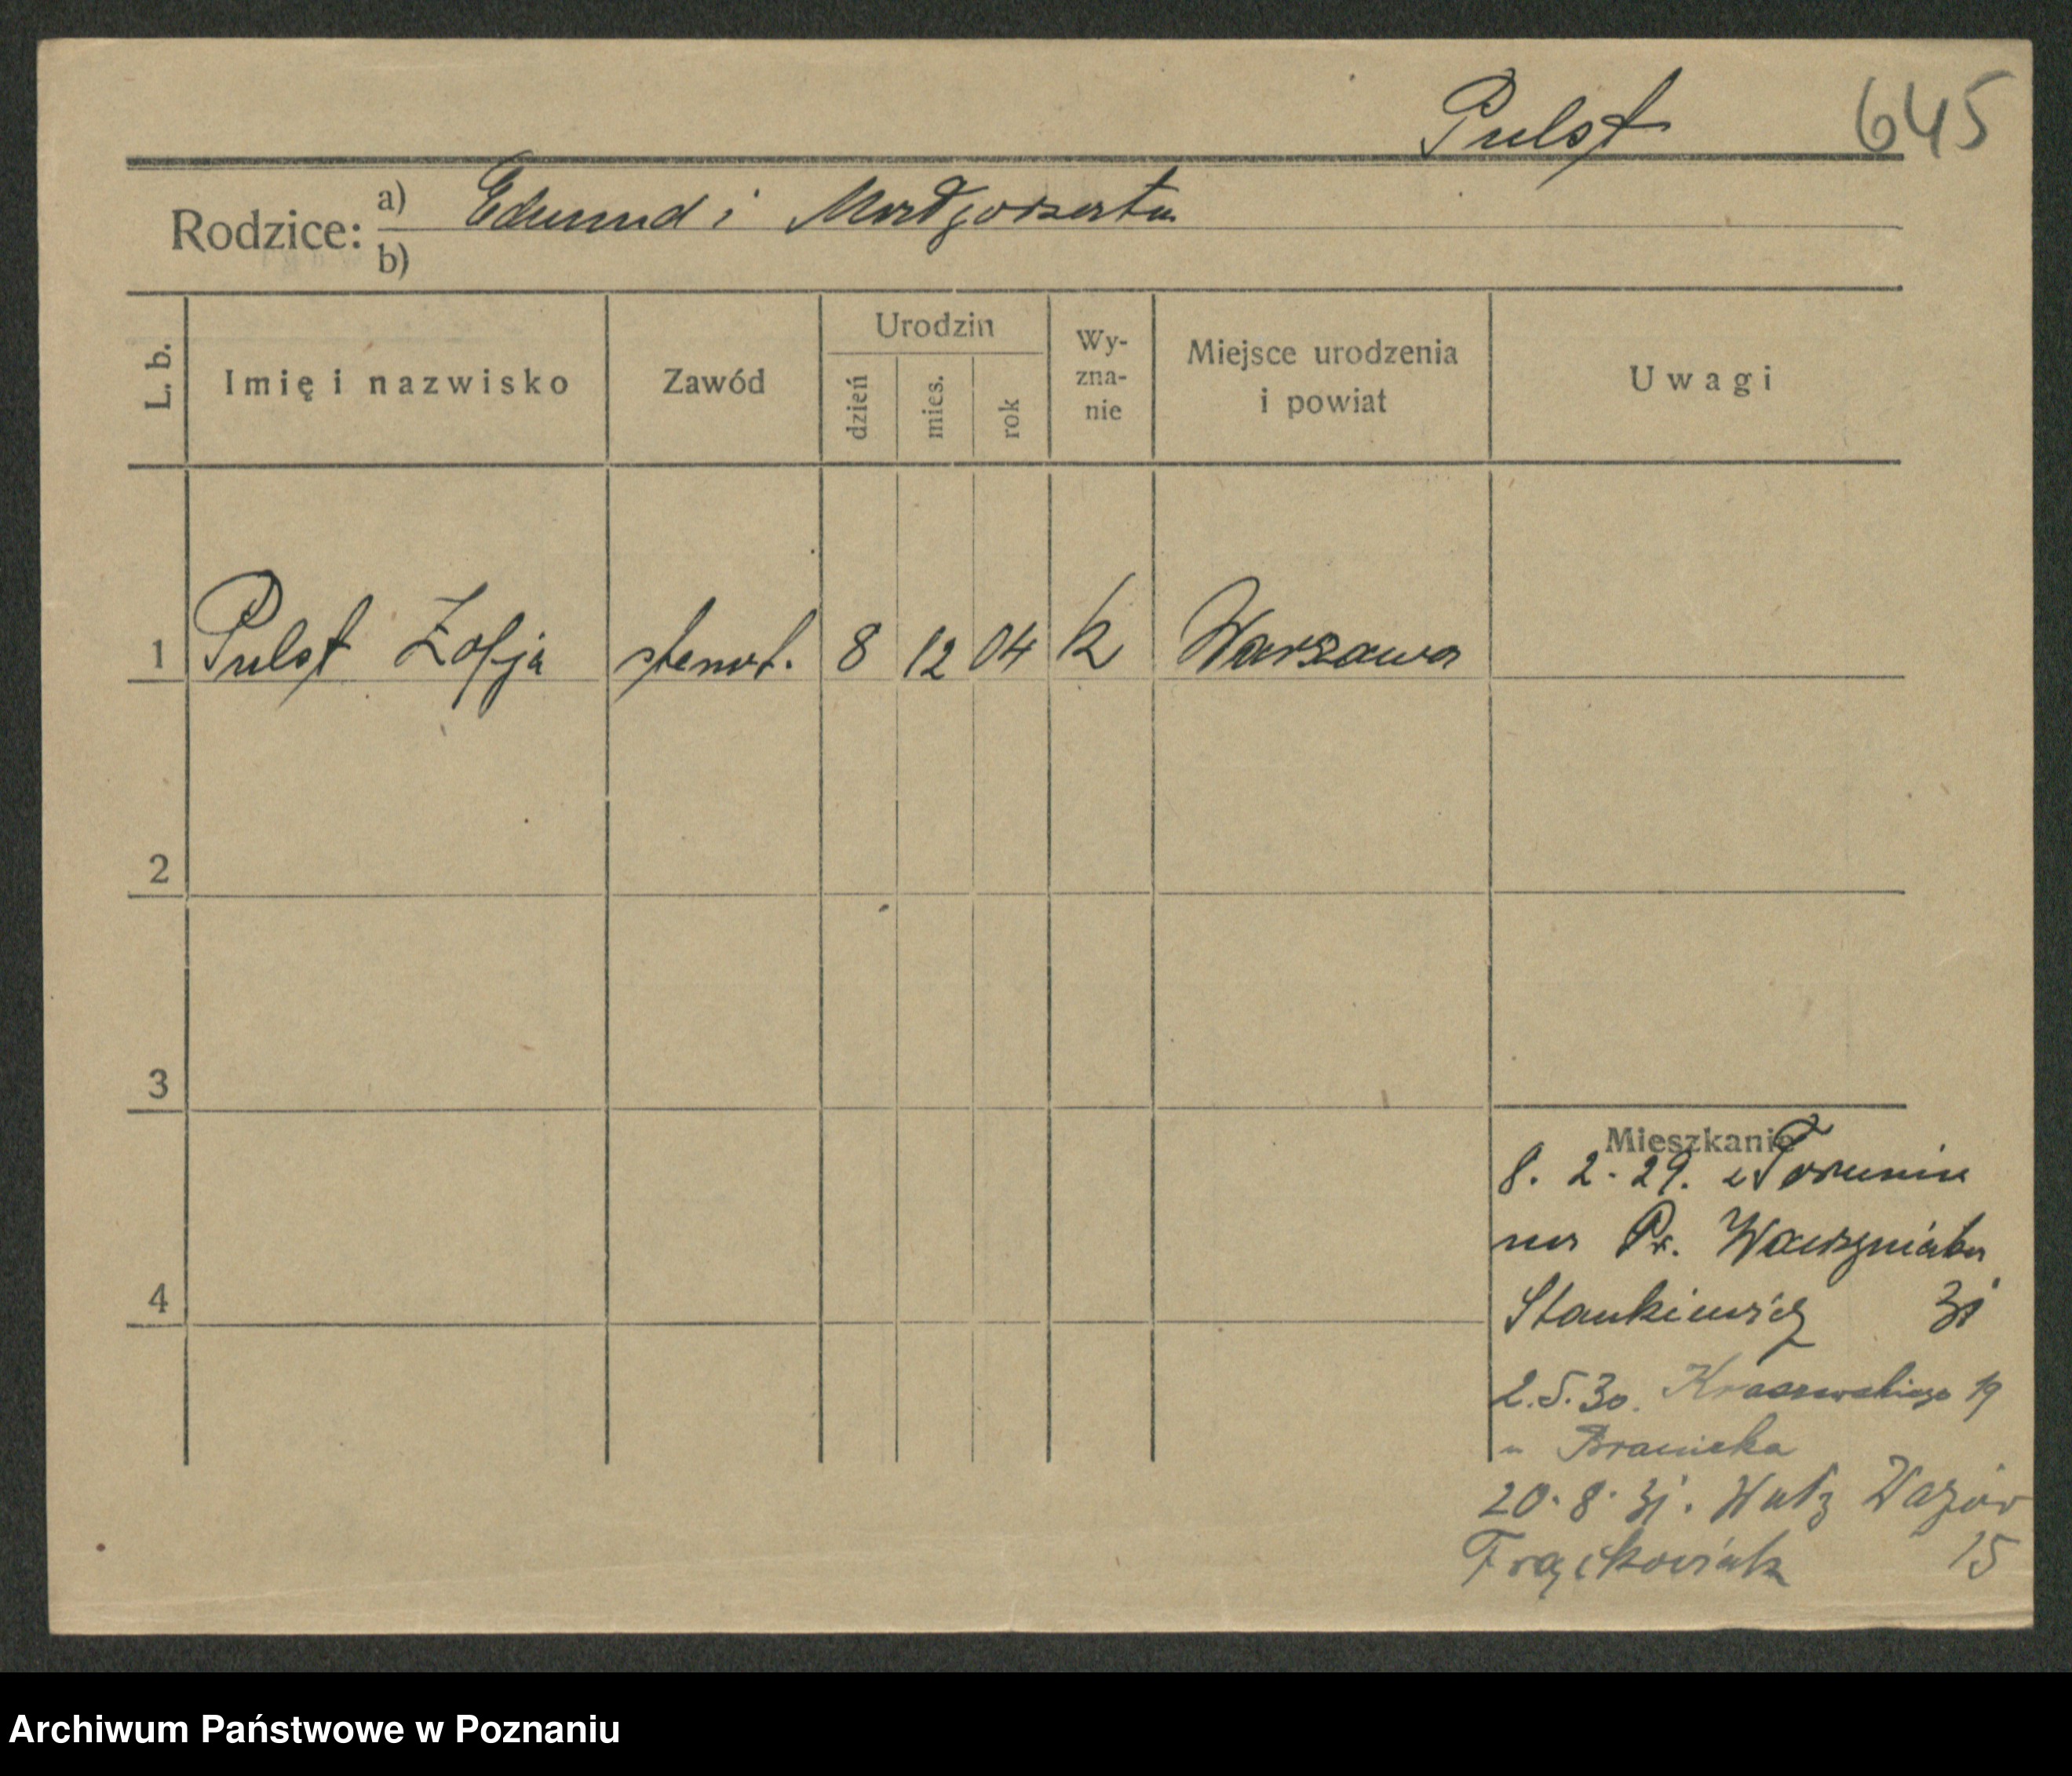 Pulst 645
Rodzice: a) Edmund i Małgorzata
b)
L. b. Imię i nazwisko Zawód Urodzin dzień mies. rok Wy-zna-nie Miejsce urodzenia i powiat Uwagi
1 Pulst Zofja stenot. 8 12 04 k Warszawa
2
3
4
Mieszkanie
8. 2. 29. z Torunia
na Pr. Wawrzyniaka
Stankiewicz 31
2.5.30. Kraszewskiego 19
" Branicka
20. 8. 31. Wały Wazów
Frąckowiak 15
Archiwum Państwowe w Poznaniu